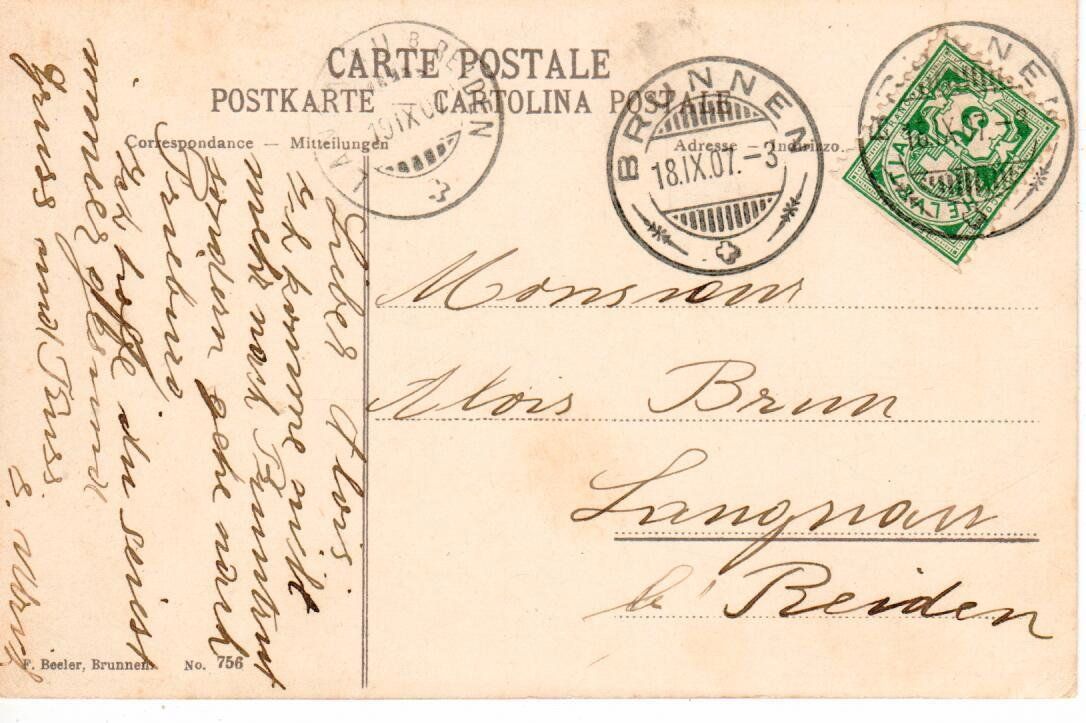 CARTE POSTALE
POSTKARTE — CARTOLINA POSTALE
Correspondance — Mitteilungen
Adresse — Indirizzo.
BRUNNEN
18.IX.07.-3
HELVETIA
5
Lieber Alois
Ich komme nicht
mehr nach
sondern gehe nach
Fribourg
Ich hoffe du seiest
immer gesund
Gruss und Kuss
Monsieur
Alois Brun
Langnau
b/ Reiden
F. Beeler, Brunnen. No. 756